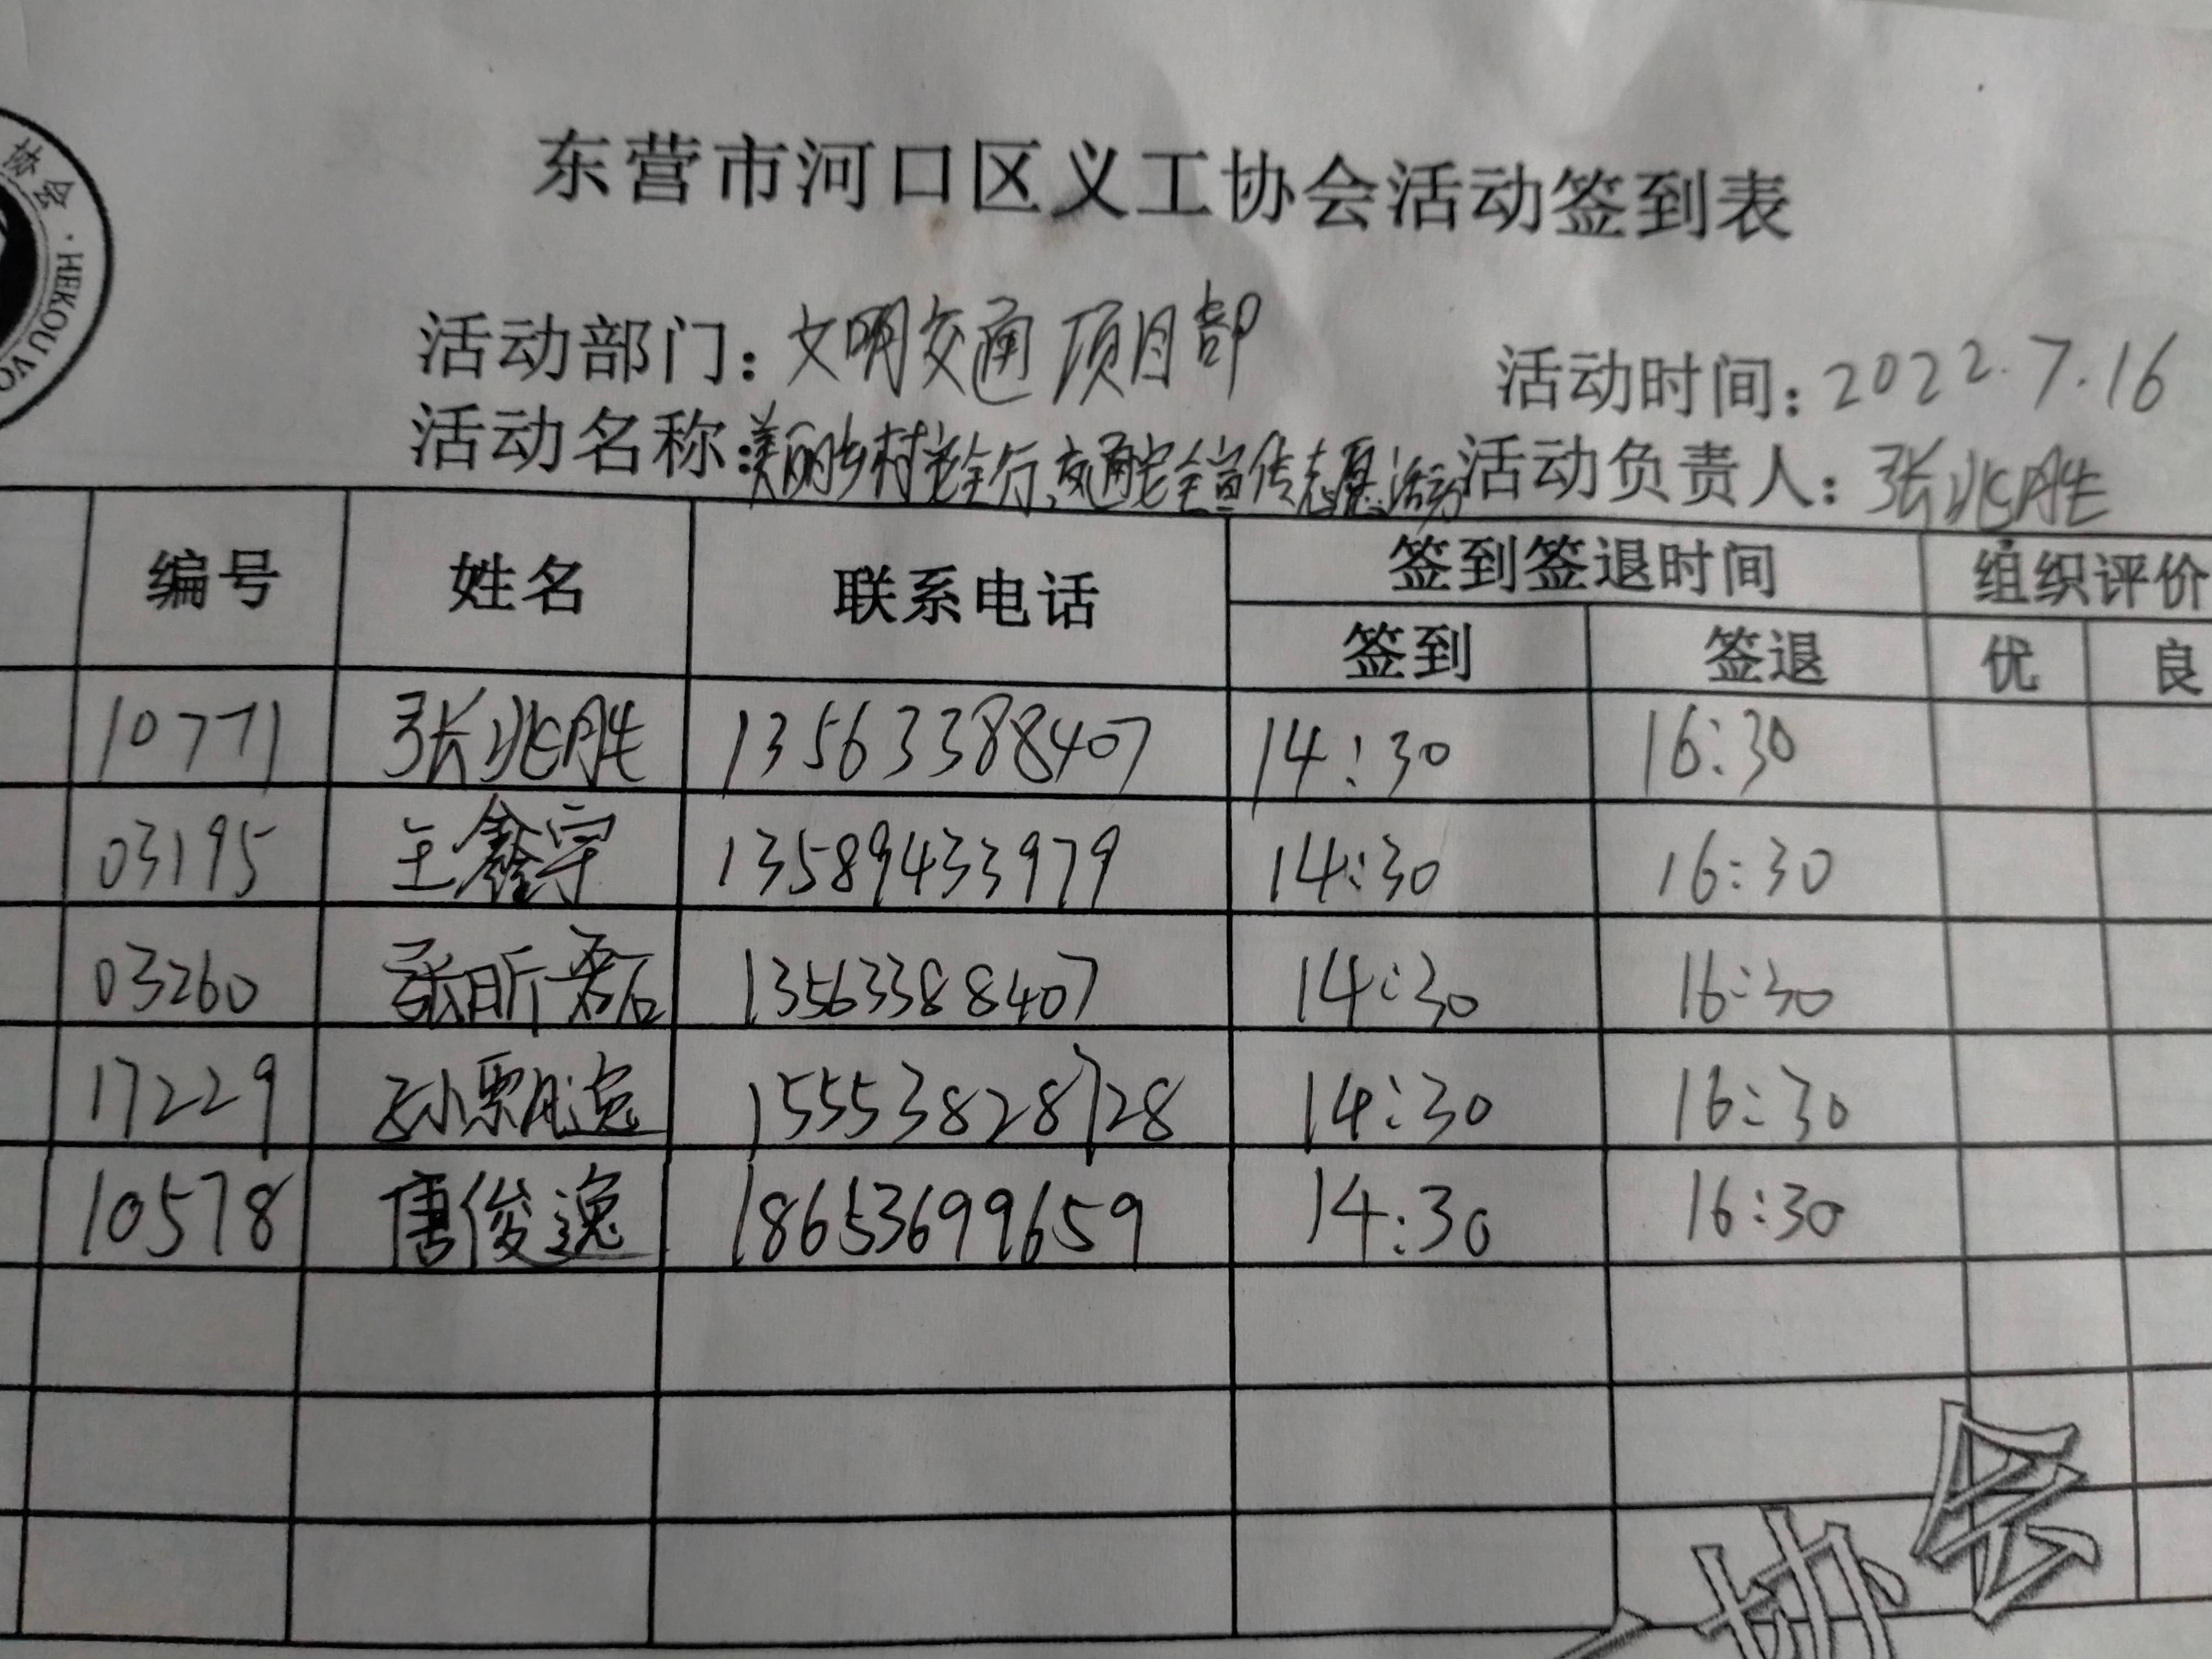 协会·HEKOU VO
东营市河口区义工协会活动签到表
活动部门：文明交通项目部 活动时间：2022.7.16
活动名称：美丽乡村安全行、交通安全宣传志愿活动 活动负责人：张兆胜
编号 姓名 联系电话 签到签退时间 组织评价
签到 签退 优 良
10771 张兆胜 13563388407 14:30 16:30
03195 王鑫宇 13589433979 14:30 16:30
03260 张昕 13563388407 14:30 16:30
17229 孙 15553828728 14:30 16:30
10578 唐俊逸 18653699659 14:30 16:30
协会